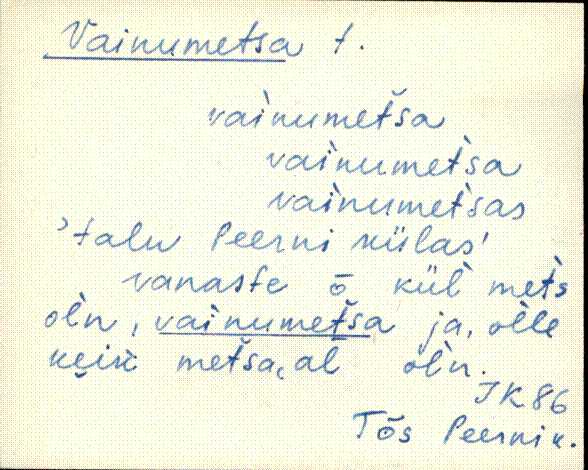 Vainumetsa t.
vaìnumetša
vaìnumet̀sa
vaìnumet̀sas
'talu Peerni külas'
vanaste õ kül̀ met̀s
ol̀n, vaìnumetša ja, olle
keik metša,al ol̀n.
JK86
Tõs Peerni k.